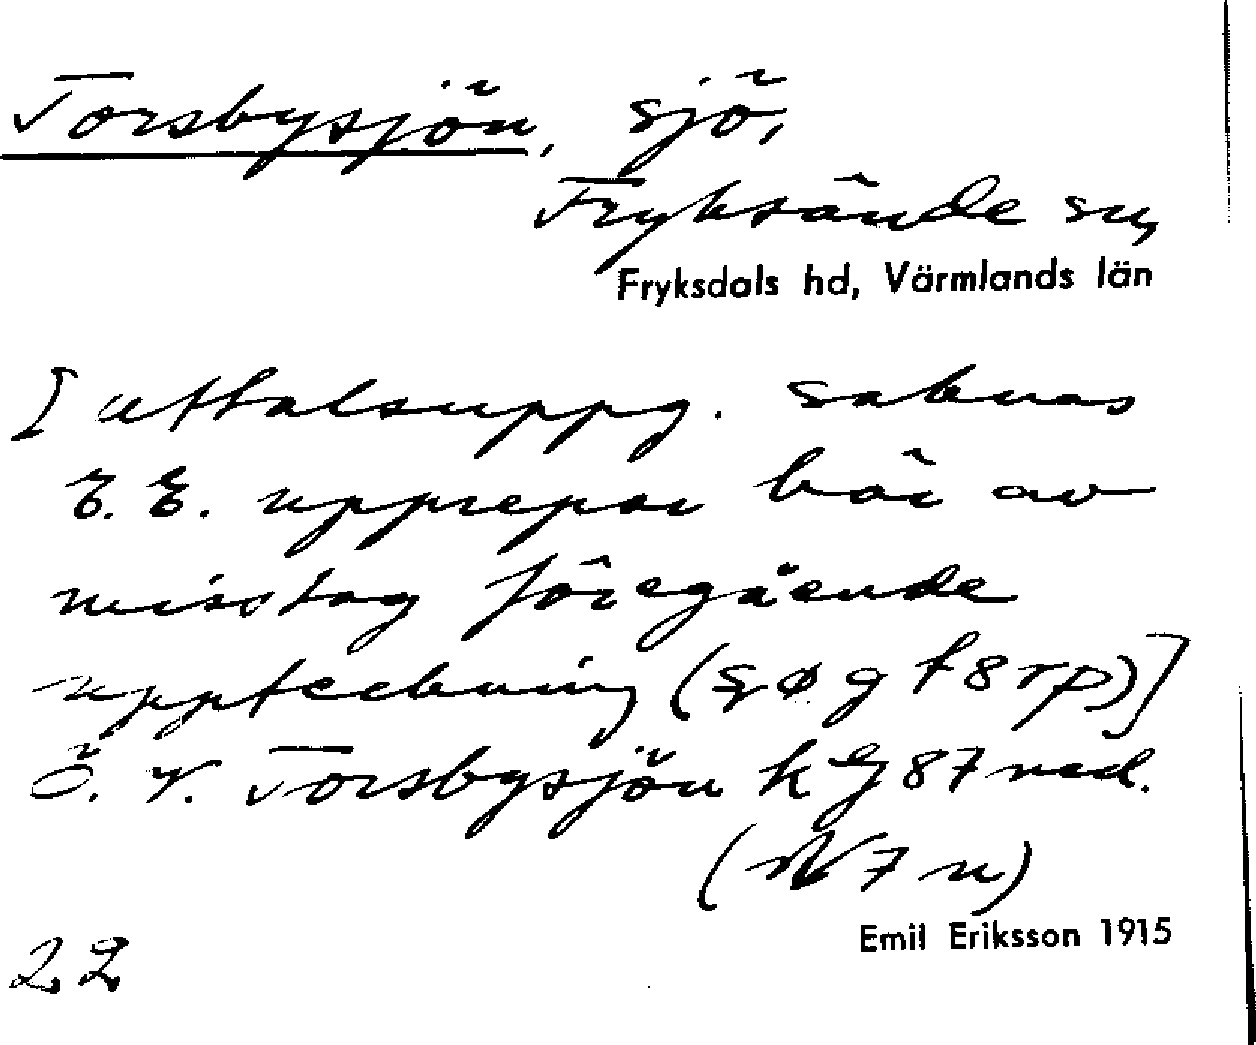 Torsbysjön, sjö,
Fryksände sn,
Fryksdals hd, Värmlands län
[uttalsuppg. saknas
E. E. upprepar här av
misstag föregående
uppteckning (
Ö. V. Torsbysjön k 87 ned.
(N 7 n)
Emil Eriksson 1915
22